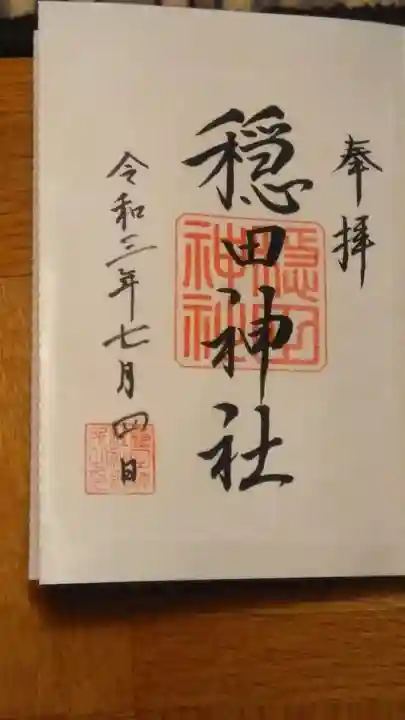 奉拝
穏田神社
隠田
神社
令和三年七月四日